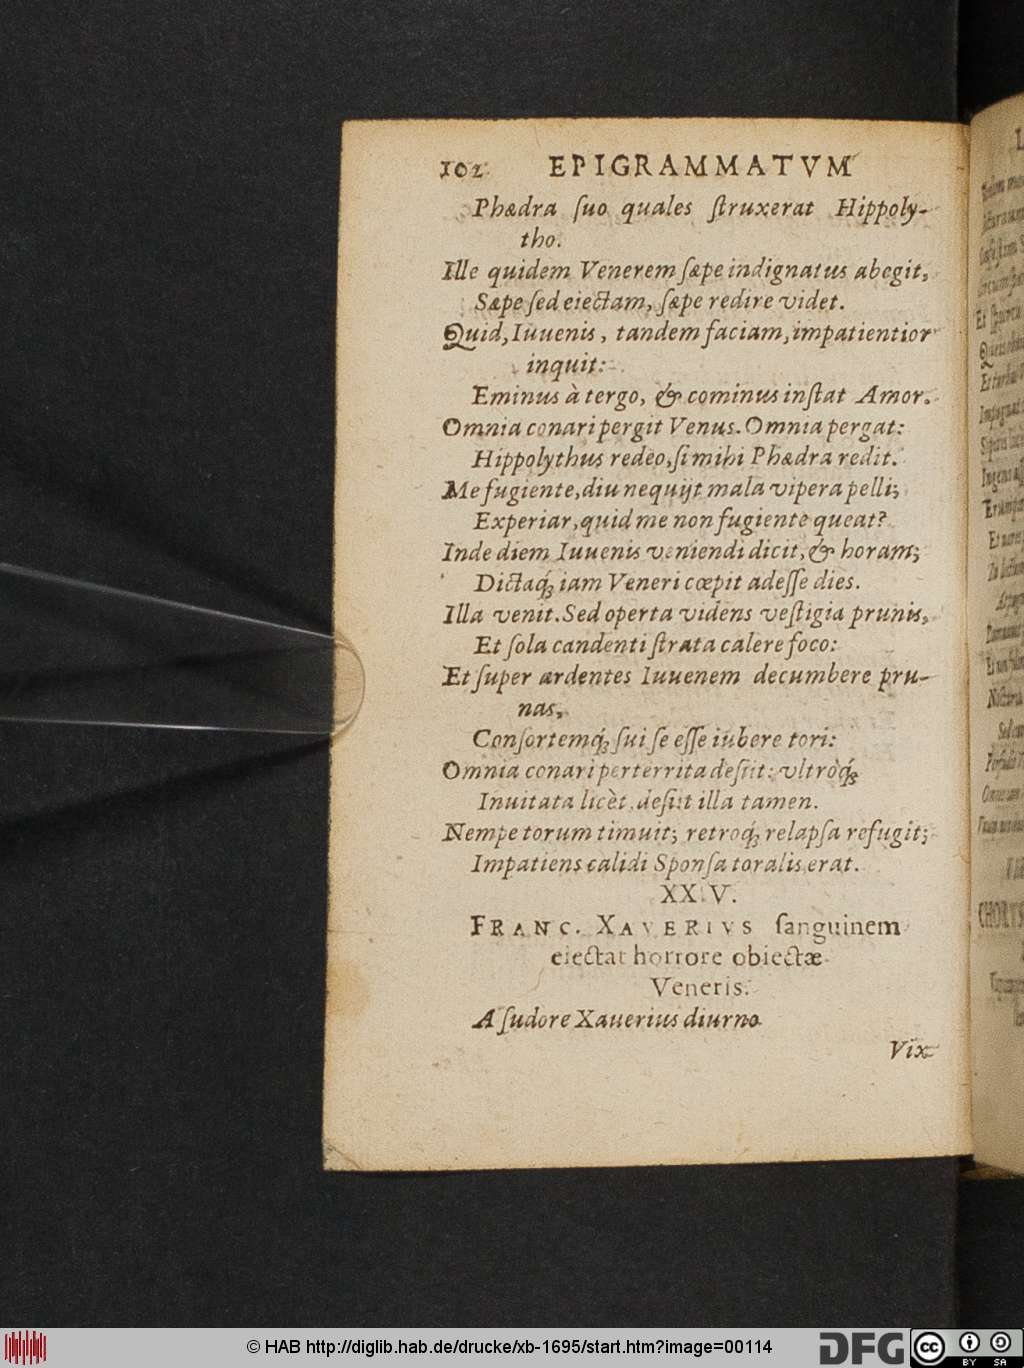 102 EPIGRAMMATVM
Phædra ſuo quales ſtruxerat Hippoly-
tho.
Ille quidem Venerem ſæpe indignatus abegit,
Sæpe ſed eiectam, ſæpe redire videt.
Quid, Iuuenis, tandem faciam, impatientior
inquit:
Eminus à tergo, & cominus inſtat Amor.
Omnia conari pergit Venus. Omnia pergat:
Hippolythus redeo, ſi mihi Phædra redit.
Me fugiente, diu nequijt mala vipera pelli;
Experiar, quid me non fugiente queat?
Inde diem Iuuenis veniendi dicit, & horam;
Dictaq́; iam Veneri cœpit adeſſe dies.
Illa venit. Sed operta videns veſtigia prunis,
Et ſola candenti ſtrata calere foco:
Et ſuper ardentes Iuuenem decumbere pru-
nas,
Conſortemq́; ſui ſe eſſe iubere tori:
Omnia conari perterrita deſiit: vltròq́;
Inuitata licèt, deſiit illa tamen.
Nempe torum timuit; retroq́; relapſa refugit;
Impatiens calidi Sponſa toralis erat.
XXV.
FRANC. XAVERIVS ſanguinem
eiectat horrore obiectæ
Veneris.
A ſudore Xauerius diurno
Vix
© HAB http://diglib.hab.de/drucke/xb-1695/start.htm?image=00114
DFG cc BY SA